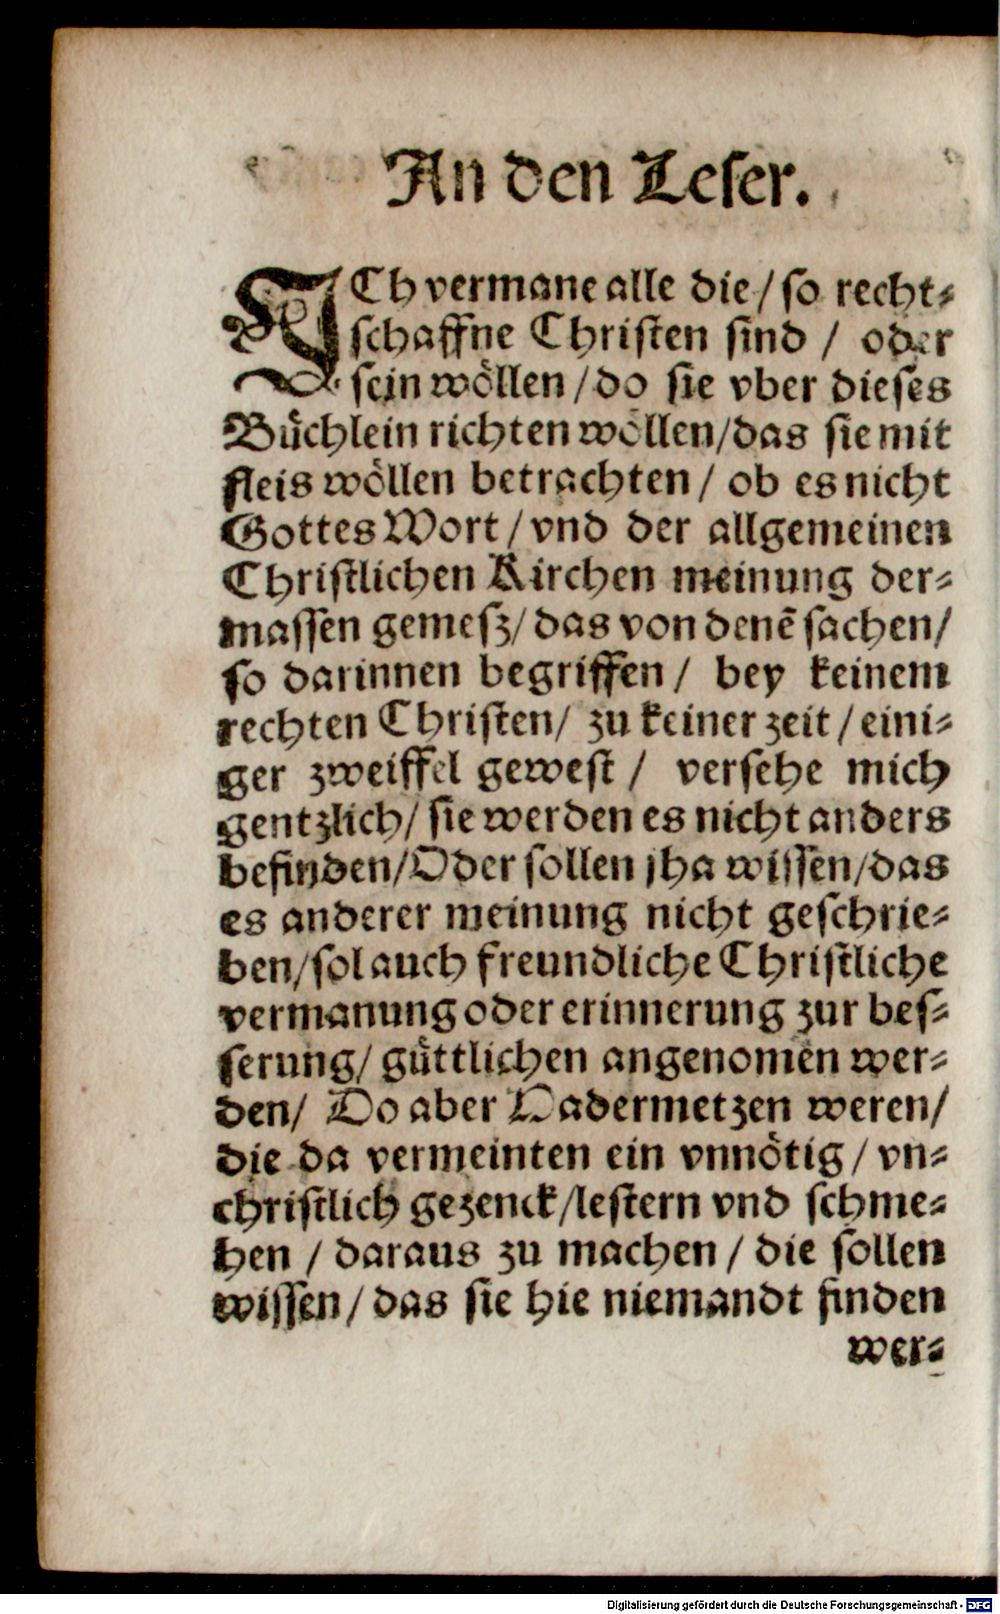 An den Leser.
ICh vermane alle die / so recht⸗
schaffne Christen sind / oder
sein wöllen / do sie vber dieses
Büchlein richten wöllen / das sie mit
fleis wöllen betrachten / ob es nicht
Gottes Wort / vnd der allgemeinen
Christlichen Kirchen meinung der⸗
massen gemesz / das von denē sachen /
so darinnen begriffen / bey keinem
rechten Christen / zu keiner zeit / eini⸗
ger zweiffel gewest / versehe mich
gentzlich / sie werden es nicht anders
befinden / Oder sollen jha wissen / das
es anderer meinung nicht geschrie⸗
ben / sol auch freundliche Christliche
vermanung oder erinnerung zur bes⸗
serung / güttlichen angenomen wer⸗
den / Do aber Hadermetzen weren /
die da vermeinten ein vnnötig / vn⸗
christlich gezenck / lestern vnd schme⸗
hen / daraus zu machen / die sollen
wissen / das sie hie niemandt finden
wer⸗
Digitalisierung gefördert durch die Deutsche Forschungsgemeinschaft - DFG